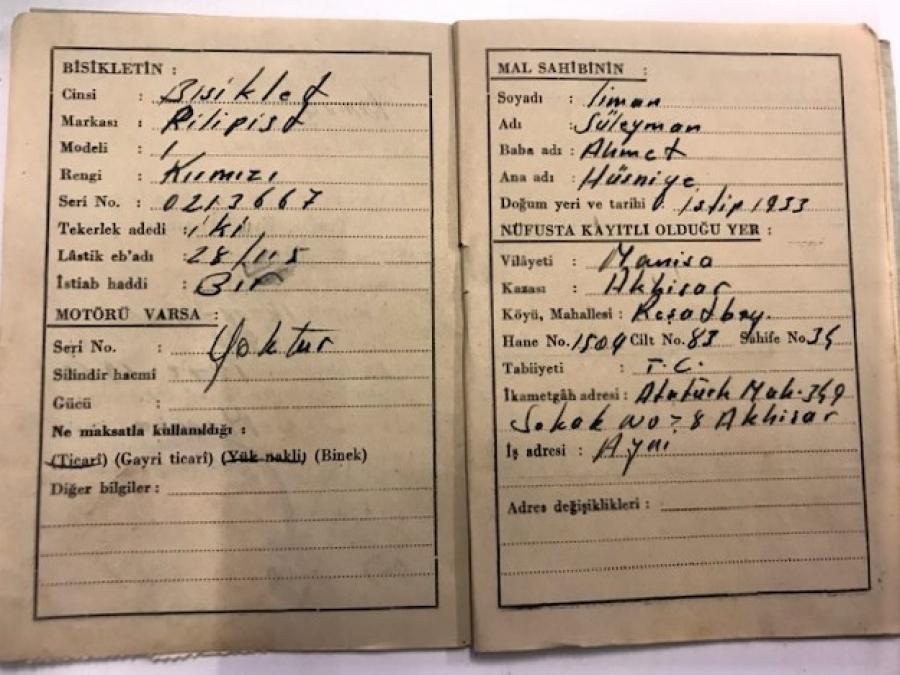 BİSİKLETİN :
Cinsi : Bisiklet
Markası : Pilipist
Modeli : 1
Rengi : Kırmızı
Seri No. : 0213667
Tekerlek adedi : iki
Lâstik eb'adı : 28/115
İstiab haddi : Bir
MOTÖRÜ VARSA :
Seri No. : Yoktur
Silindir hacmi :
Gücü :
Ne maksatla kullanıldığı :
(Ticarî) (Gayri ticarî) (Yük nakli) (Binek)
Diğer bilgiler :
MAL SAHİBİNİN :
Soyadı : Liman
Adı : Süleyman
Baba adı : Ahmet
Ana adı : Hüsniye
Doğum yeri ve tarihi : İştip 1933
NÜFUSTA KAYITLI OLDUĞU YER :
Vilâyeti : Manisa
Kazası : Akhisar
Köyü, Mahallesi : Reşadbey.
Hane No. 1504 Cilt No. 83 Sahife No 34
Tabiiyeti : T.C.
İkametgâh adresi : Atatürk Mah. 349
Sokak No: 8 Akhisar
İş adresi : Aynı
Adres değişiklikleri :